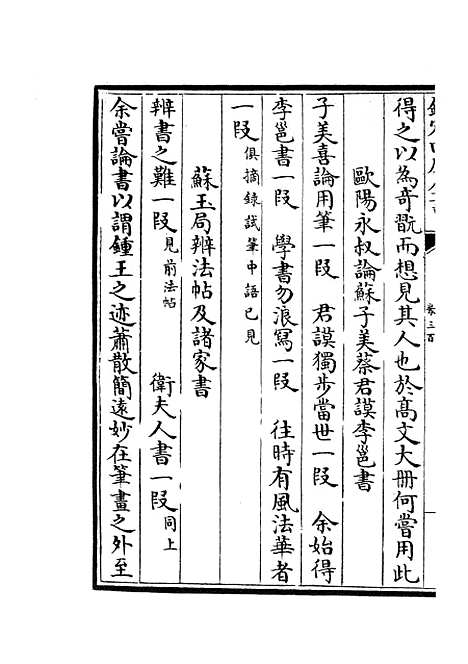 卷三百
得之以為奇翫而想見其人也於高文大冊何嘗用此
歐陽永叔論蘇子美蔡君謨李邕書
子美喜論用筆一段 君謨獨步當世一段 余始得
李邕書一段 學書勿浪寫一段 往時有風法華者
一段 俱摘錄試筆中語已見
蘇玉局辨法帖及諸家書
辨書之難一段 見前法帖 衛夫人書一段 同上
余嘗論書以謂鍾王之迹蕭散簡遠妙在筆畫之外至